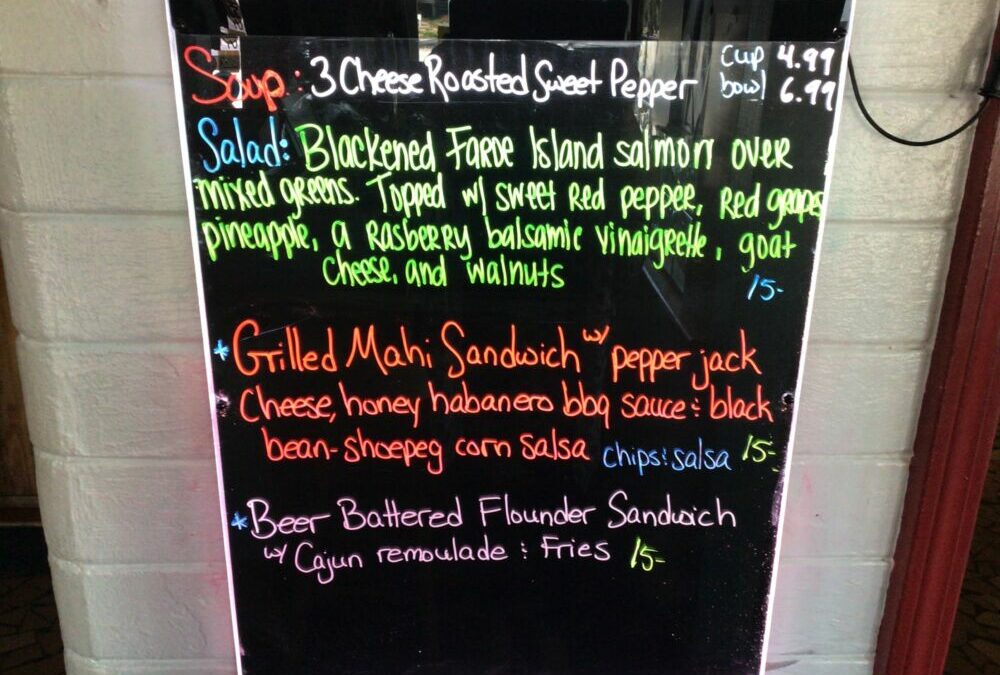 Soup: 3 Cheese Roasted Sweet Pepper cup 4.99
bowl 6.99
Salad: Blackened Faroe Island salmon over
mixed greens. Topped w/ sweet red pepper, red grapes
pineapple, a Rasberry balsamic vinaigrette, goat
cheese, and walnuts 15-
*Grilled Mahi Sandwich w/ pepper jack
Cheese, honey habanero bbq sauce & black
bean-shoepeg corn salsa chips & salsa 15-
*Beer Battered Flounder Sandwich
w/ Cajun remoulade & Fries 15-